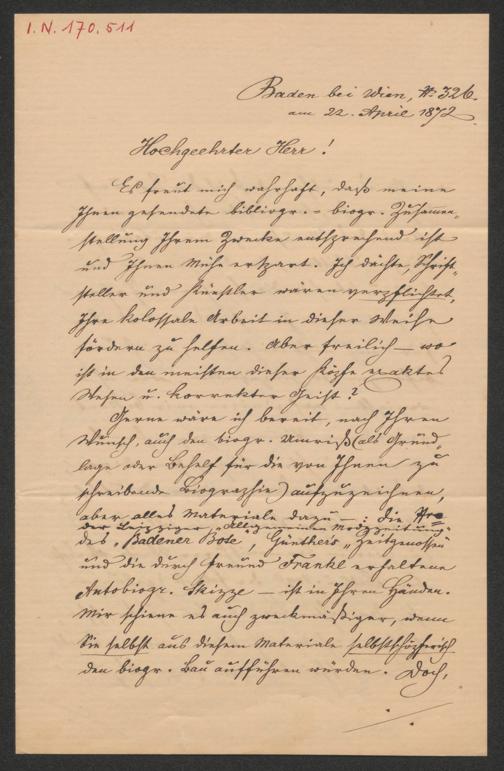 I. N. 170.511
Baden bei Wien, N: 326.
am 22. April 1872.
Hochgeehrter Herr!
Es freut mich wahrhaft, daß meine
Ihnen gesendete bibliogr. - biogr. Zusammen-
stellung Ihrem Zwecke entsprechend ist
und Ihnen Mühe erspart. Ich dächte, Schrift-
steller und Künstler wären verpflichtet,
Ihre kolossale Arbeit in dieser Weise
fördern zu helfen. Aber freilich — wo
ist in den meisten dieser Köpfe exaktes
Wesen u. korrekter Geist?
Gerne wäre ich bereit, nach Ihrem
Wunsch, auch den biogr. Umriß (als Grund-
lage oder Behelf für die von Ihnen zu
schreibende Biographie) aufzuzeichnen,
aber alles Materiale dazu —: die
der Leipziger „Allgemeinen Modezeitung"
des „Badener Bote", Günther's „Zeitgenossen
und die durch Freund Frankl erhaltene
Autobiogr. Skizze — ist in Ihren Händen.
Mir schiene es auch zweckmäßiger, wenn
Sie selbst aus diesem Materiale selbstschöpferisch
den biogr. Bau aufführen würden. Doch,